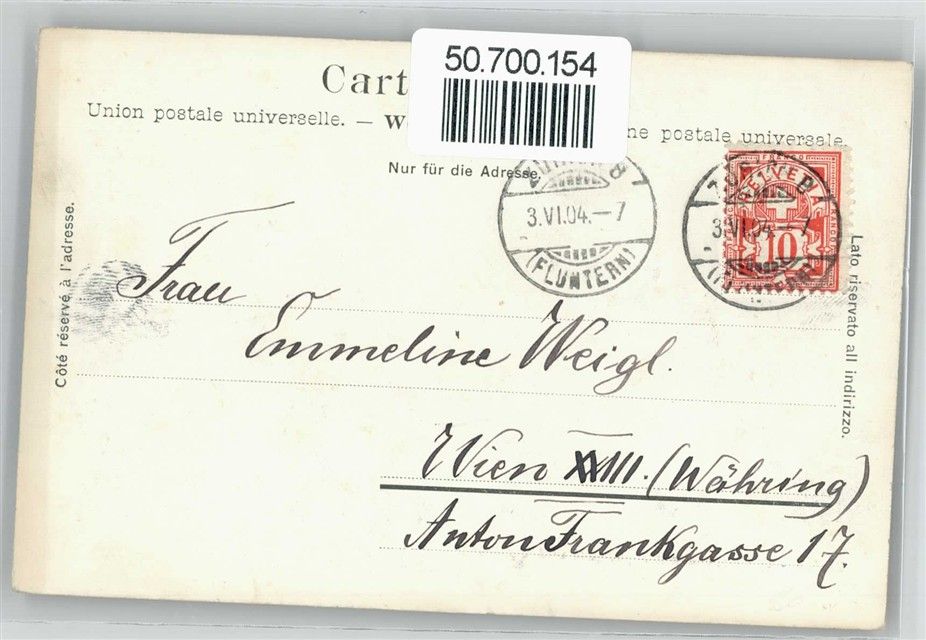 50.700.154
Cart
Union postale universelle. — We
ne postale universale.
Nur für die Adresse.
Côté réservé à l'adresse.
Lato riservato all indirizzo.
3.VI.04.–7
(FLUNTERN)
FRANCO
HELVETIA
10
3.VI.04.–7
Frau
Emmeline Weigl.
Wien XVIII. (Währing)
Anton Frankgasse 17.